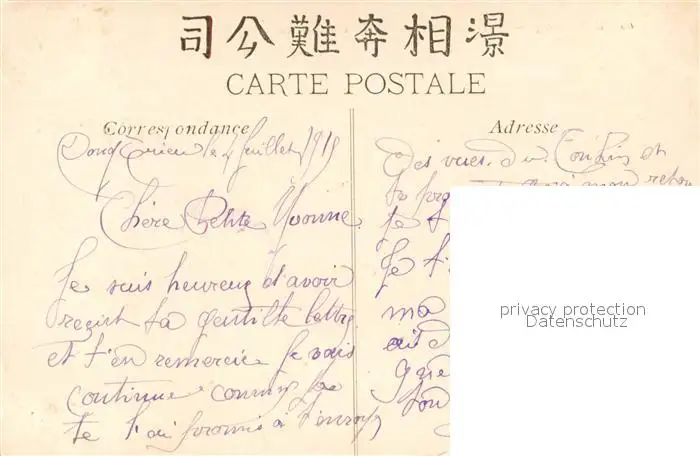 司公難奔相濎
CARTE POSTALE
Correspondance
Adresse
le 4 Juillet 1919
Chère Petite Yvonne
Je suis heureuz d'avoir
reçut ta gentille lettre
et t'en remercie Je vais
continue comme je
te l'ai promis à t'envoyer
Des vues du Tonkin et
mon retour
te
Je t'
ma
que
privacy protection
Datenschutz